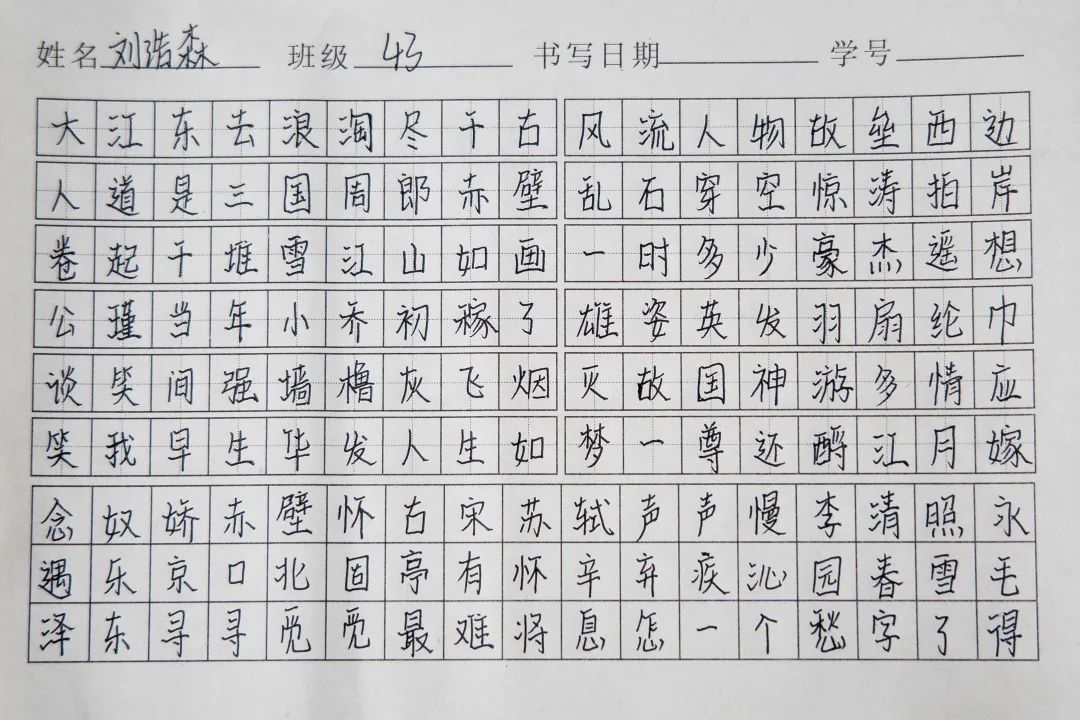 姓名 刘浩森 班级 43 书写日期 学号
大江东去浪淘尽千古风流人物故垒西边
人道是三国周郎赤壁乱石穿空惊涛拍岸
卷起千堆雪江山如画一时多少豪杰遥想
公瑾当年小乔初稼了雄姿英发羽扇纶巾
谈笑间强墙橹灰飞烟灭故国神游多情应
笑我早生华发人生如梦一尊还酹江月嫁
念奴娇赤壁怀古宋苏轼声声慢李清照永
遇乐京口北固亭有怀辛弃疾沁园春雪毛
泽东寻寻觅觅最难将息怎一个愁字了得